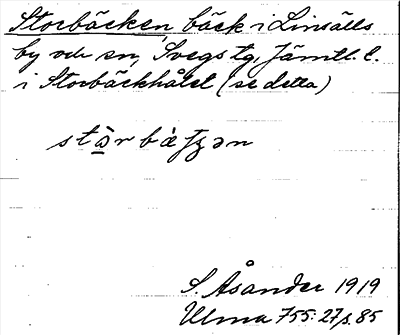 Storbäcken bäck i Linsälls
by och sn, Svegs tg, Jämtl. l.
i Storbäckhålet (se detta)
S. Åsander 1919
Ulma 755:27 s. 85